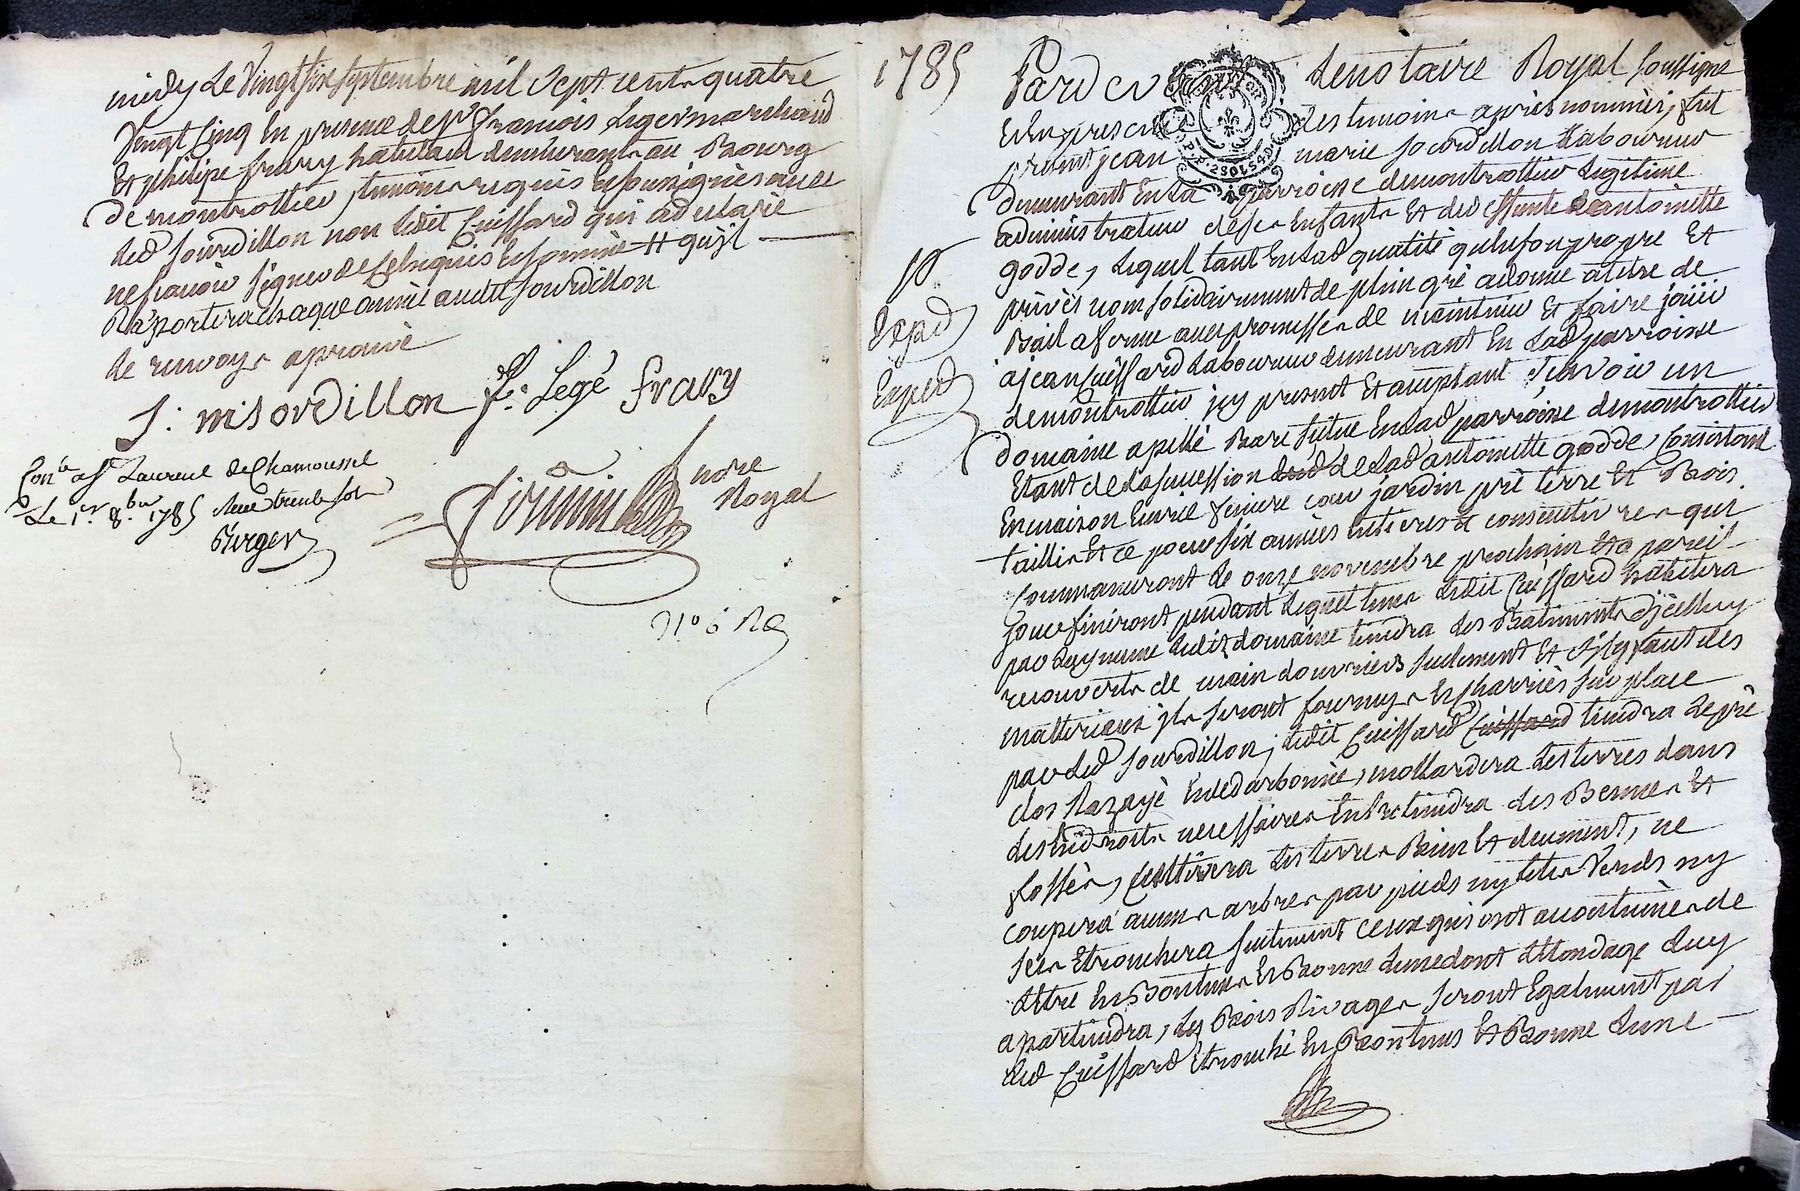 midy le vingt six septembre mil sept cents quatre
vingt cinq En presence de sr francois Leger marchand
Et philipe frary habitant demeurants au Bourg
de montrottier, temoins requis Et soussignès avec
led Sourdillon non ledit Cuissard qui a declaré
ne scavoir signer de ce Enquis Et sommè # qu'jl
Raportera chaque annèe audit Sourdillon
de renvoys aprouvè
J: m: Sordillon fs: Legé frary
notre
Royal
Conlé a St Laurent de Chamousset
Le 1er 8.bre 1785 Reçu trente sols
Berger
1785
Pardevant Le notaire Royal soussigné
Et En presence des temoins aprés nommèes, fut
present jean marie Sourdillon Laboureur
demeurant En la parroisse de montrottier Legitime
administrateur de ses Enfants Et de deffunte antoinette
godde, Lequel tant En lad qualité qu'En son propre Et
privès nom solidairement de plein gré a donné a titre de
Bail a ferme avec promesses de maintenir Et faire jouir
a jean Cuissard Laboureur demeurant En lad parroisse
de montrottier jcy present Et acceptant Scavoir un
domaine apellé situé En lad parroisse de montrottier
Etant de la succession de lad antoinette godde, Consistant
En maison Ecurie feniere cour jardin prè terre Et Bois
taillis Et ce pour six annèes Entieres Et consecutives qui
Commanceront le onze novembre prochain Et a pareil
jour finiront pendant lequel tems ledit Cuissard habitera
par luy meme ledit domaine tiendra les Batiments d'jcelluy
recouverts de main d'ouvriers seulement Et s'il y faut des
matteriaux jls seront fournys Et charriès sur place
par led Sourdillon, ledit Cuissard Cuissard tiendra le prè
clos Razayè Et edarbonnèe, mollardera les terres dans
les Endroits necessaires Entretiendra les Bermes Et
fossès, Cultivera les terres Bien Et deument, ne
coupera aucuns arbres par pieds ny tetes verds ny
secs Etronchera seulement ceux qui ont accoutumès de
L'Etre En Bontems Et Bonne Lune dont L'Mondage luy
apartiendra, Les Bois Rivages seront Egalement par
led Cuissard Etronché En Bontems Et Bonne Lune